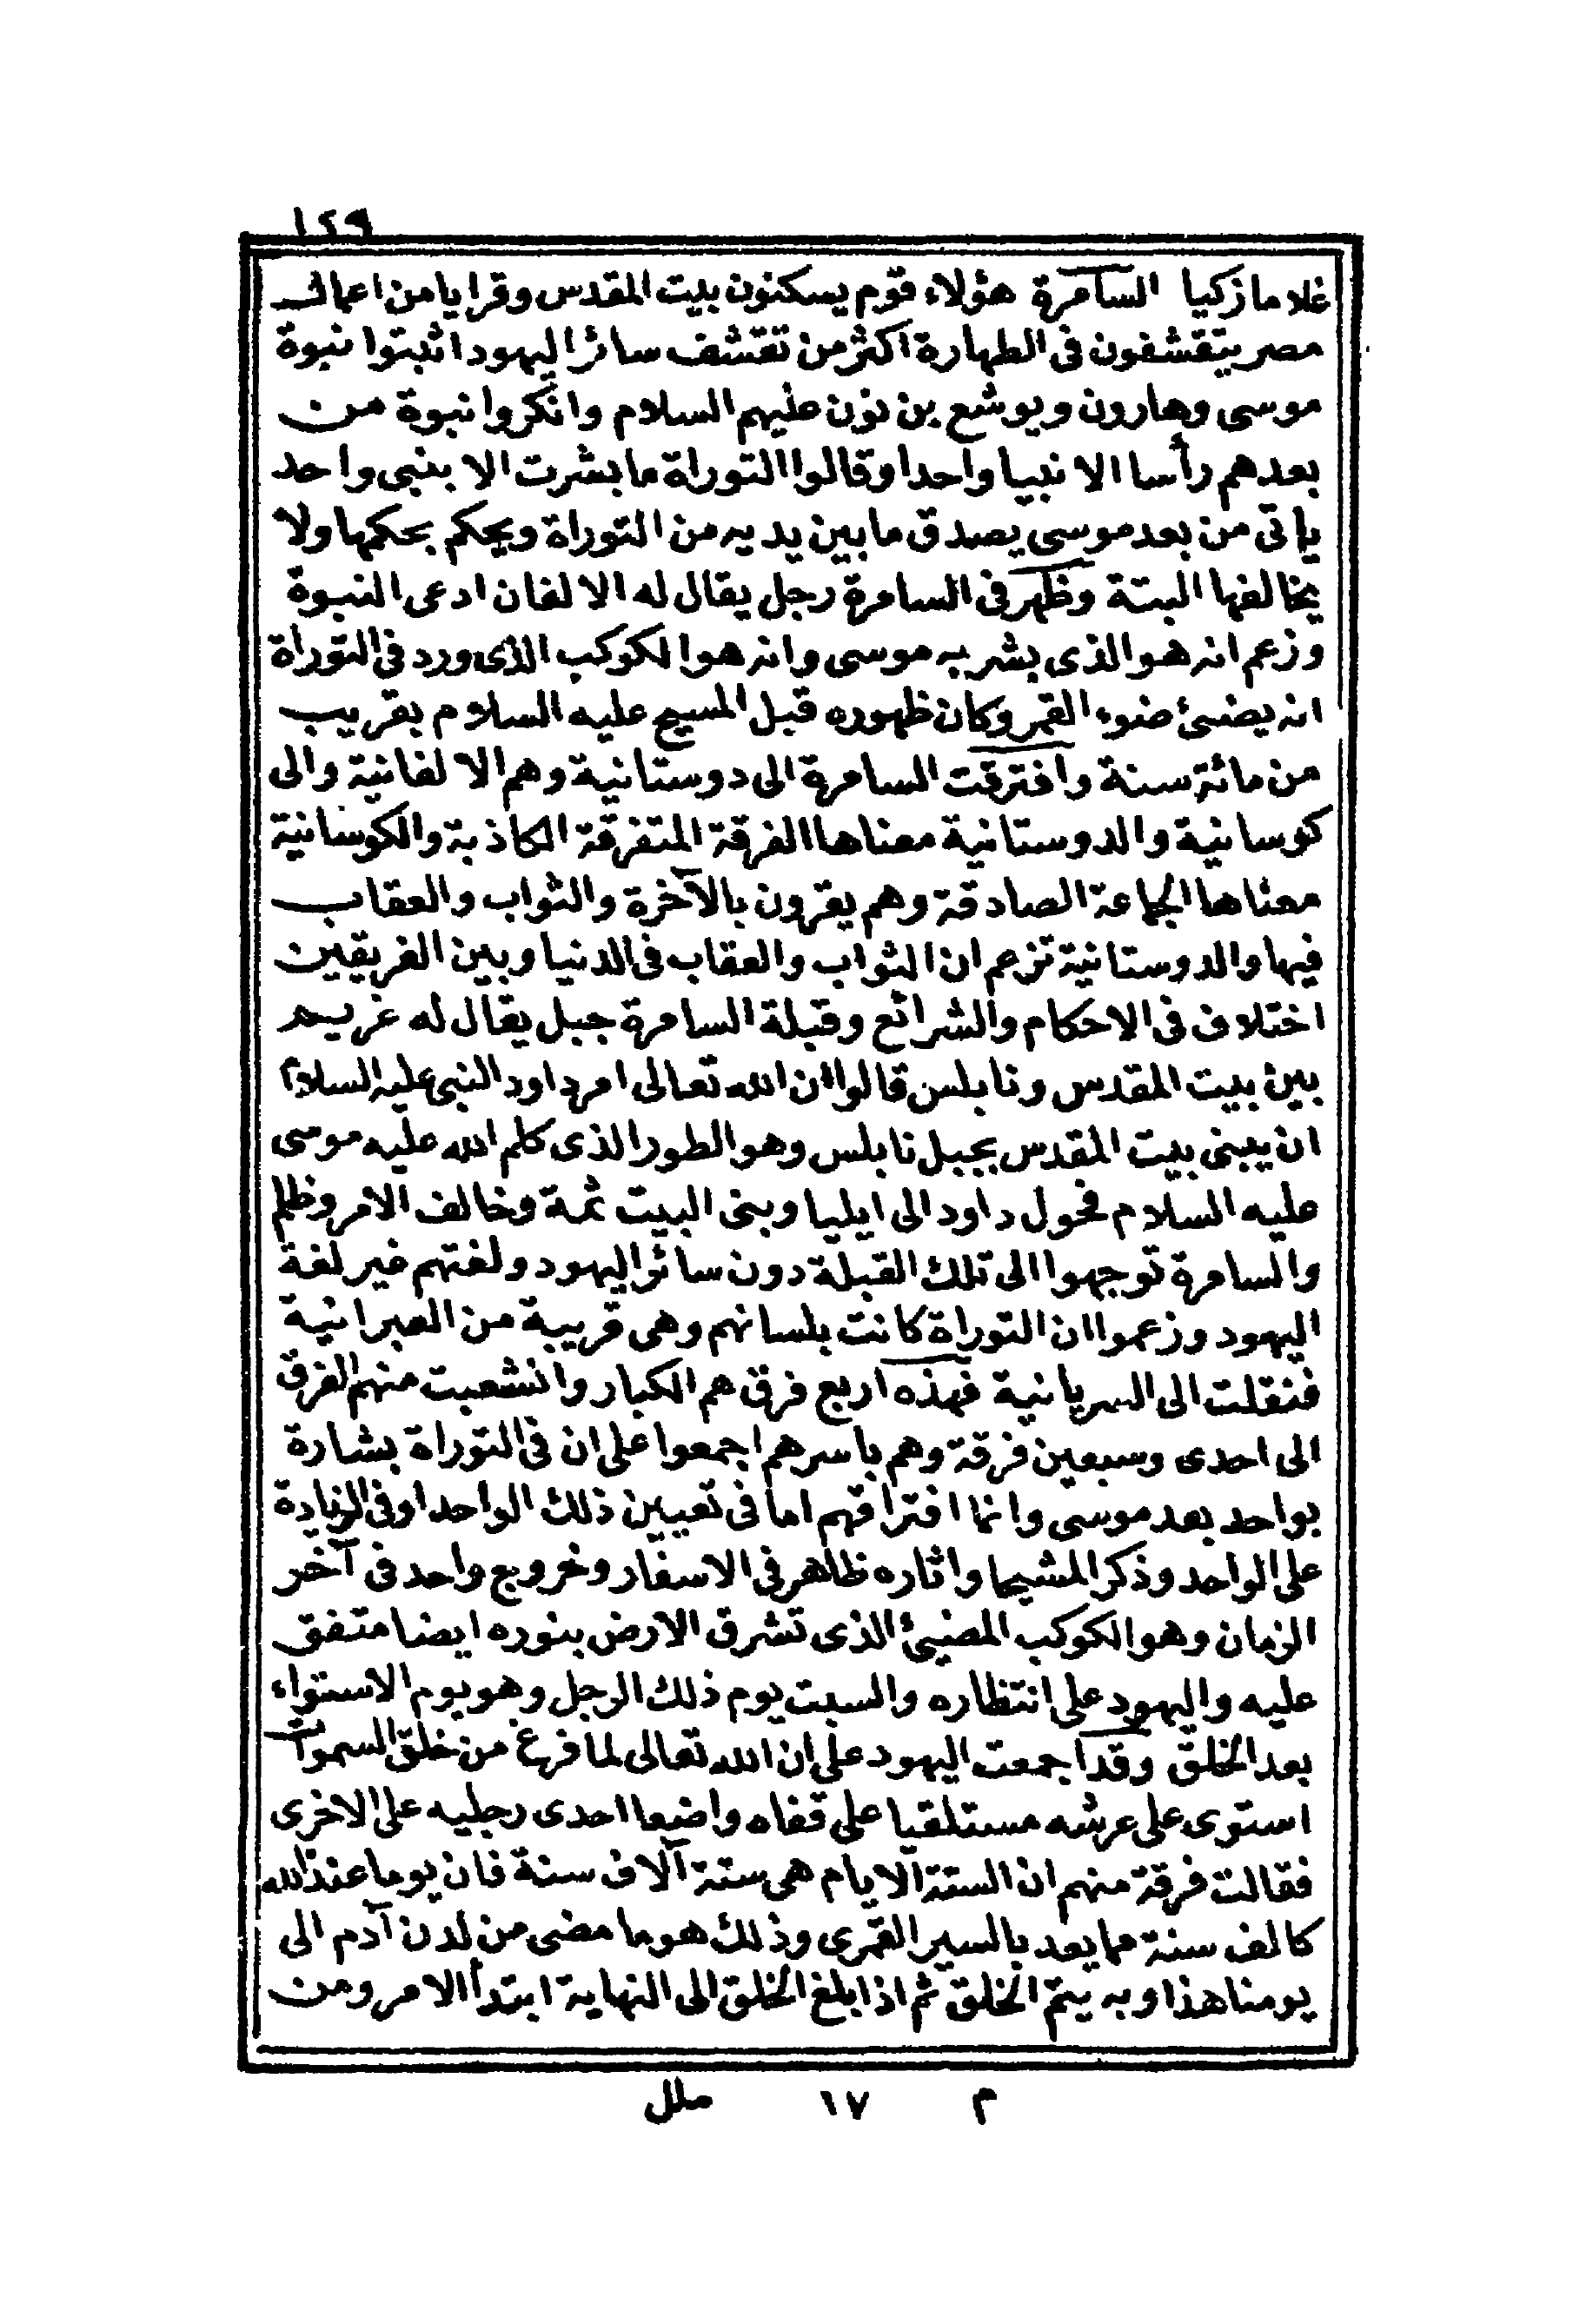 ١٢٩
غلاما زكيا السامرة هؤلاء قوم يسكنون بيت المقدس وقرايا من اعمال
مصر يتقشفون فى الطهارة اكثر من تقشف سائر اليهود اثبتوا نبوة
موسى وهارون ويوشع بن نون عليهم السلام وانكروا نبوة من
بعدهم رأسا الا نبيا واحدا وقالوا التوراة ما بشرت الا بنبى واحد
ياتى من بعد موسى يصدق ما بين يديه من التوراة ويحكم بحكمها ولا
يخالفها البتة وظهر فى السامرة رجل يقال له الالفان ادعى النبوة
وزعم انه هو الذى بشر به موسى وانه هو الكوكب الذى ورد فى التوراة
انه يضئ ضوء القمر وكان ظهوره قبل المسيح عليه السلام بقريب
من مائة سنة وافترقت السامرة الى دوستانية وهم الالفانية والى
كوسانية والدوستانية معناها الفرقة المتفرقة الكاذبة والكوسانية
معناها الجماعة الصادقة وهم يقرون بالآخرة والثواب والعقاب
فيها والدوستانية تزعم ان الثواب والعقاب فى الدنيا وبين الفريقين
اختلاف فى الاحكام والشرائع وقبلة السامرة جبل يقال له غريم
بين بيت المقدس ونابلس قالوا ان الله تعالى امر داود النبى عليه السلام
ان يبنى بيت المقدس بجبل نابلس وهو الطور الذى كلم الله عليه موسى
عليه السلام فحول داود الى ايليا وبنى البيت ثمة وخالف الامر وظلم
والسامرة توجهوا الى تلك القبلة دون سائر اليهود ولغتهم غير لغة
اليهود وزعموا ان التوراة كانت بلسانهم وهى قريبة من العبرانية
فنقلت الى السريانية فهذه اربع فرق هم الكبار وانشعبت منهم الفرق
الى احدى وسبعين فرقة وهم باسرهم اجمعوا على ان فى التوراة بشارة
بواحد بعد موسى وانما افتراقهم اما فى تعيين ذلك الواحد او فى الزيادة
على الواحد وذكر المشيحا واثاره ظاهر فى الاسفار وخروج واحد فى آخر
الزمان وهو الكوكب المضيئ الذى تشرق الارض بنوره ايضا متفق
عليه واليهود على انتظاره والسبت يوم ذلك الرجل وهو يوم الاستواء
بعد الخلق وقد اجمعت اليهود على ان الله تعالى لما فرغ من خلق السموات
استوى على عرشه مستلقيا على قفاه واضعا احدى رجليه على الاخرى
فقالت فرقة منهم ان الستة الايام هى ستة آلاف سنة فان يوما عند الله
كالف سنة مما يعد بالسير القمرى وذلك هو ما مضى من لدن آدم الى
يومنا هذا وبه يتم الخلق ثم اذا بلغ الخلق الى النهاية ابتدأ الامر ومن
م ١٧ ملل